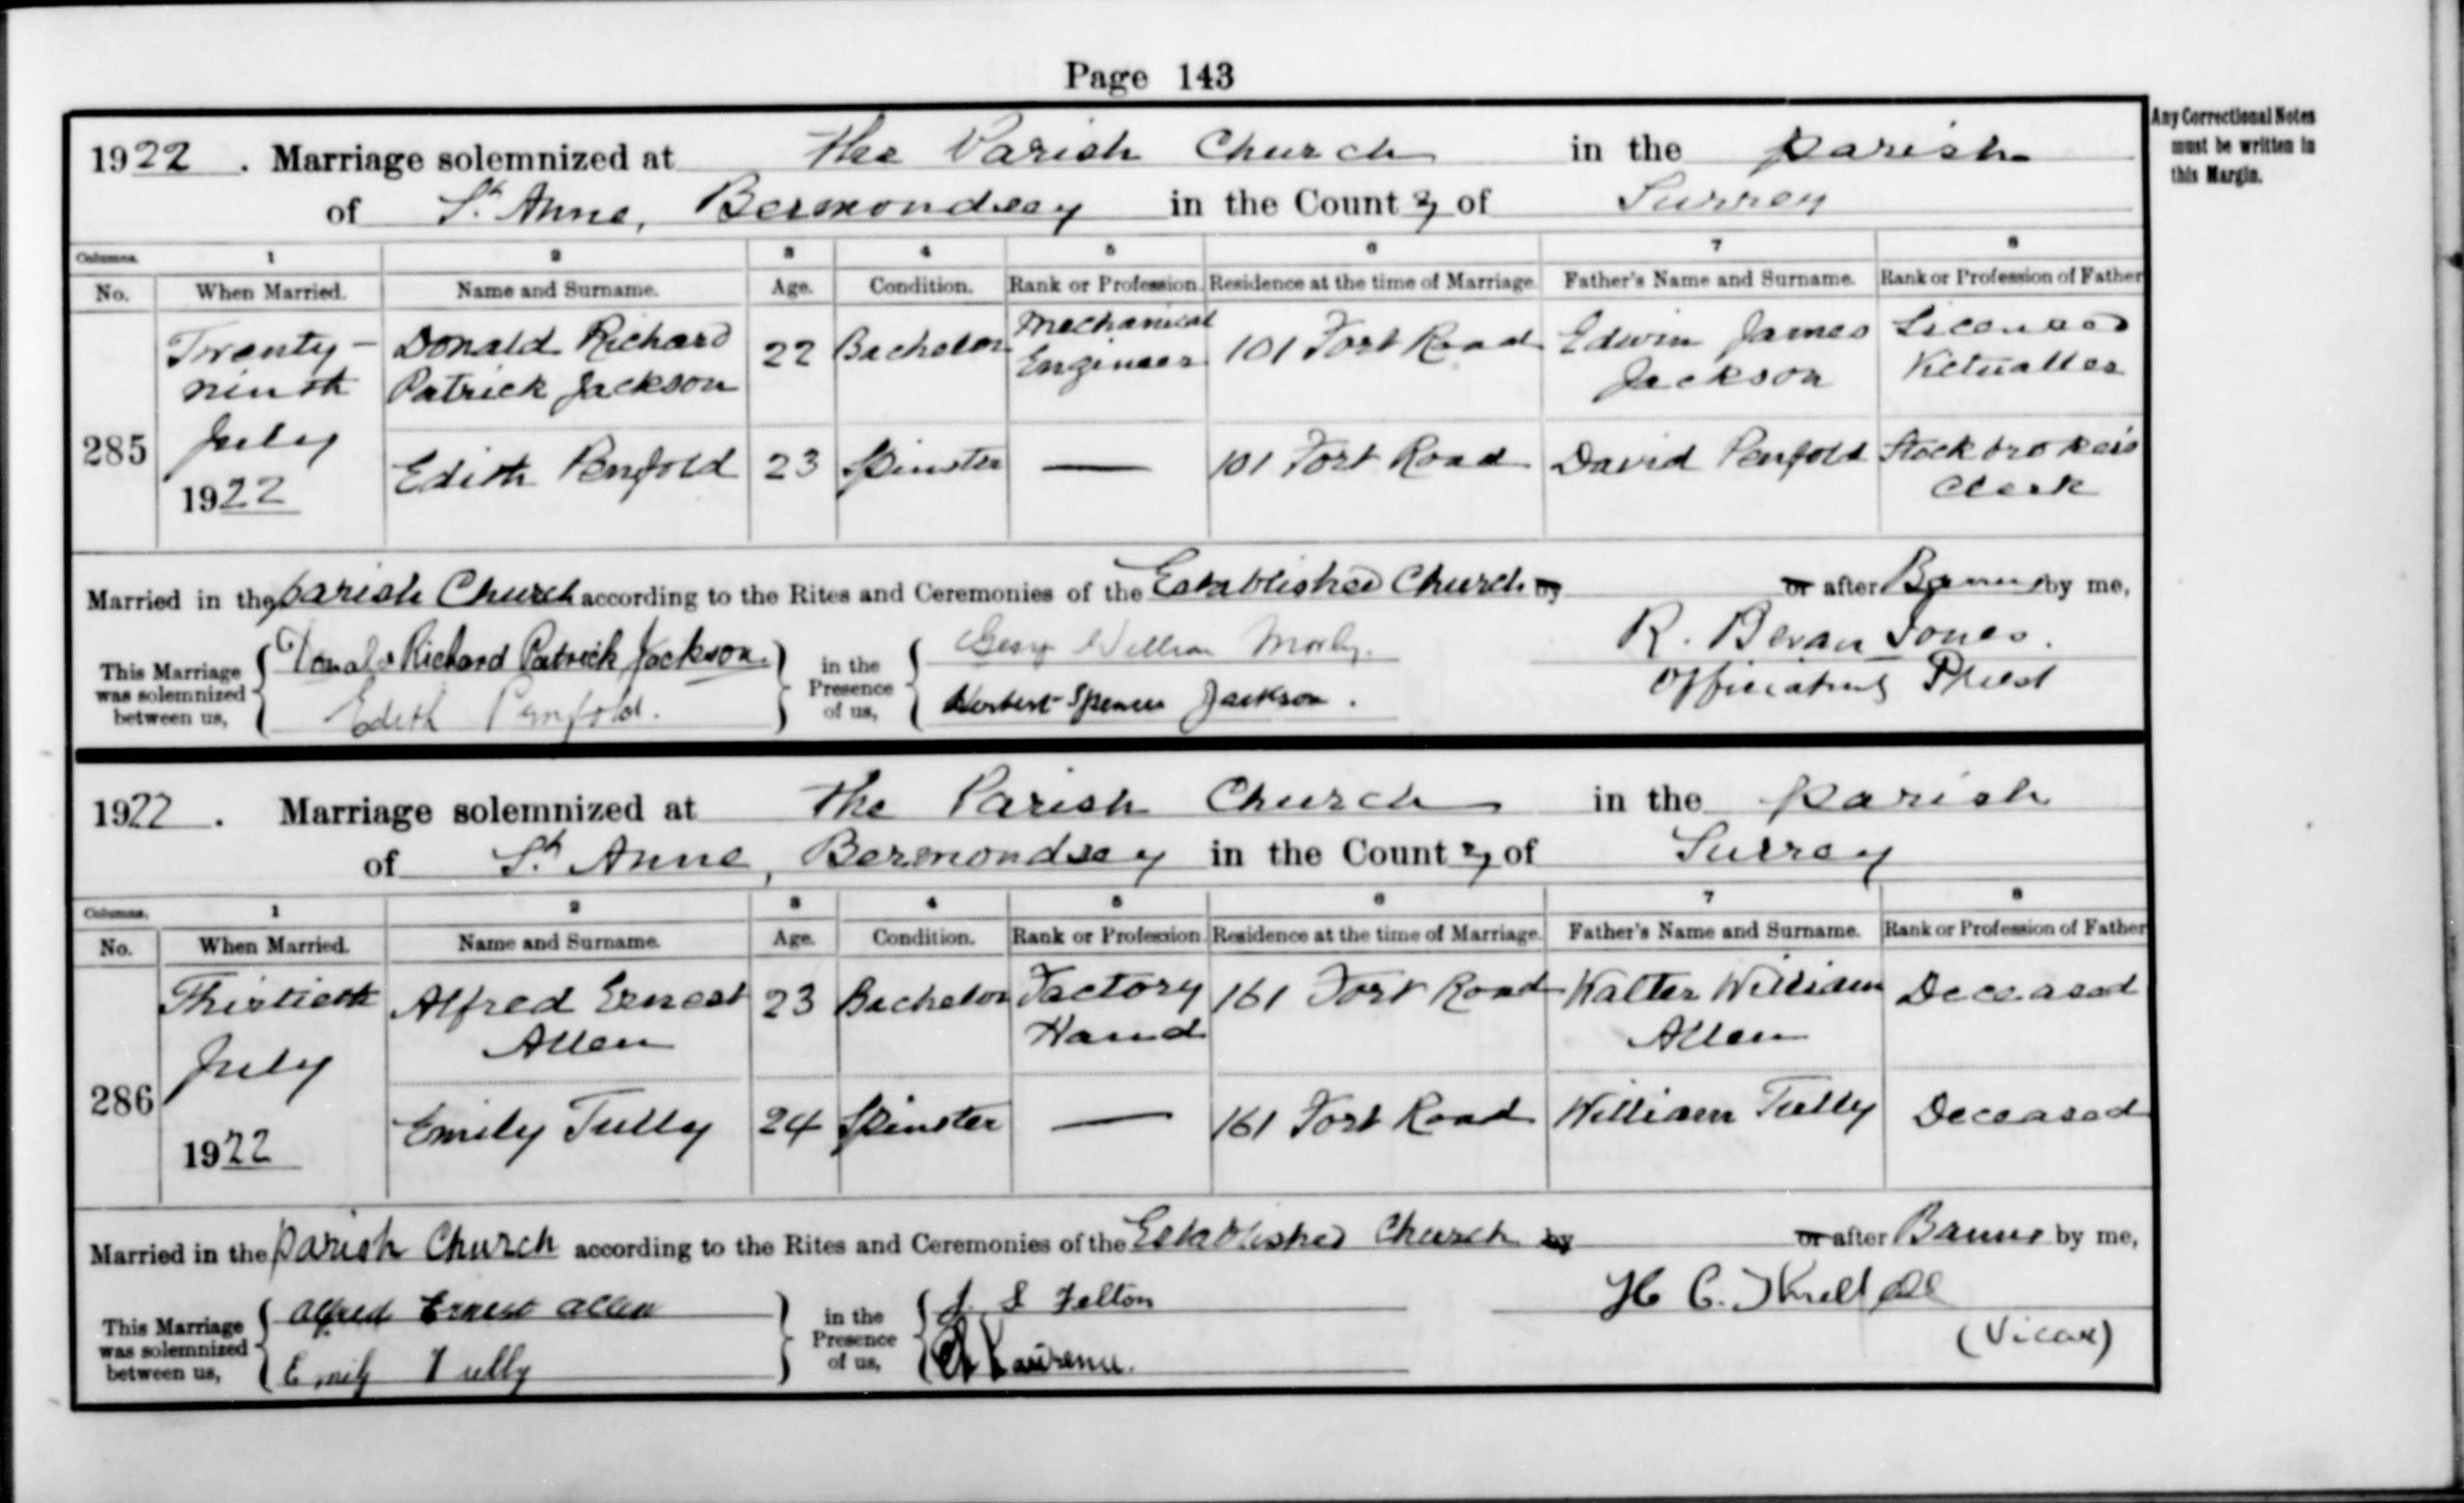 Page 143
Any Correctional Notes
must be written in
this Margin.
1922. Marriage solemnized at The Parish Church in the parish
of St. Anne, Bermondsey in the County of Surrey
Columns. 1 2 3 4 5 6 7 8
No. When Married. Name and Surname. Age. Condition. Rank or Profession. Residence at the time of Marriage. Father's Name and Surname. Rank or Profession of Father
285 Twenty-ninth July 1922 Donald Richard Patrick Jackson 22 Bachelor Mechanical Engineer 101 Fort Road Edwin James Jackson Licensed Victualler
Edith Penfold 23 Spinster — 101 Fort Road David Penfold Stockbroker's Clerk
Married in the parish Church according to the Rites and Ceremonies of the Established Church by or after Banns by me,
This Marriage was solemnized between us, Donald Richard Patrick Jackson. Edith Penfold. in the Presence of us, William Herbert Spencer Jackson. R. Bevan Jones. Officiating Priest
1922. Marriage solemnized at The Parish Church in the parish
of St. Anne, Bermondsey in the County of Surrey
Columns. 1 2 3 4 5 6 7 8
No. When Married. Name and Surname. Age. Condition. Rank or Profession Residence at the time of Marriage. Father's Name and Surname. Rank or Profession of Father
286 Thirtieth July 1922 Alfred Ernest Allen 23 Bachelor Factory Hand 161 Fort Road Walter William Allen Deceased
Emily Tully 24 Spinster — 161 Fort Road William Tully Deceased
Married in the parish Church according to the Rites and Ceremonies of the Established Church by or after Banns by me,
This Marriage was solemnized between us, Alfred Ernest Allen Emily Tully in the Presence of us, J. S Felton Lawrence. H C. (Vicar)